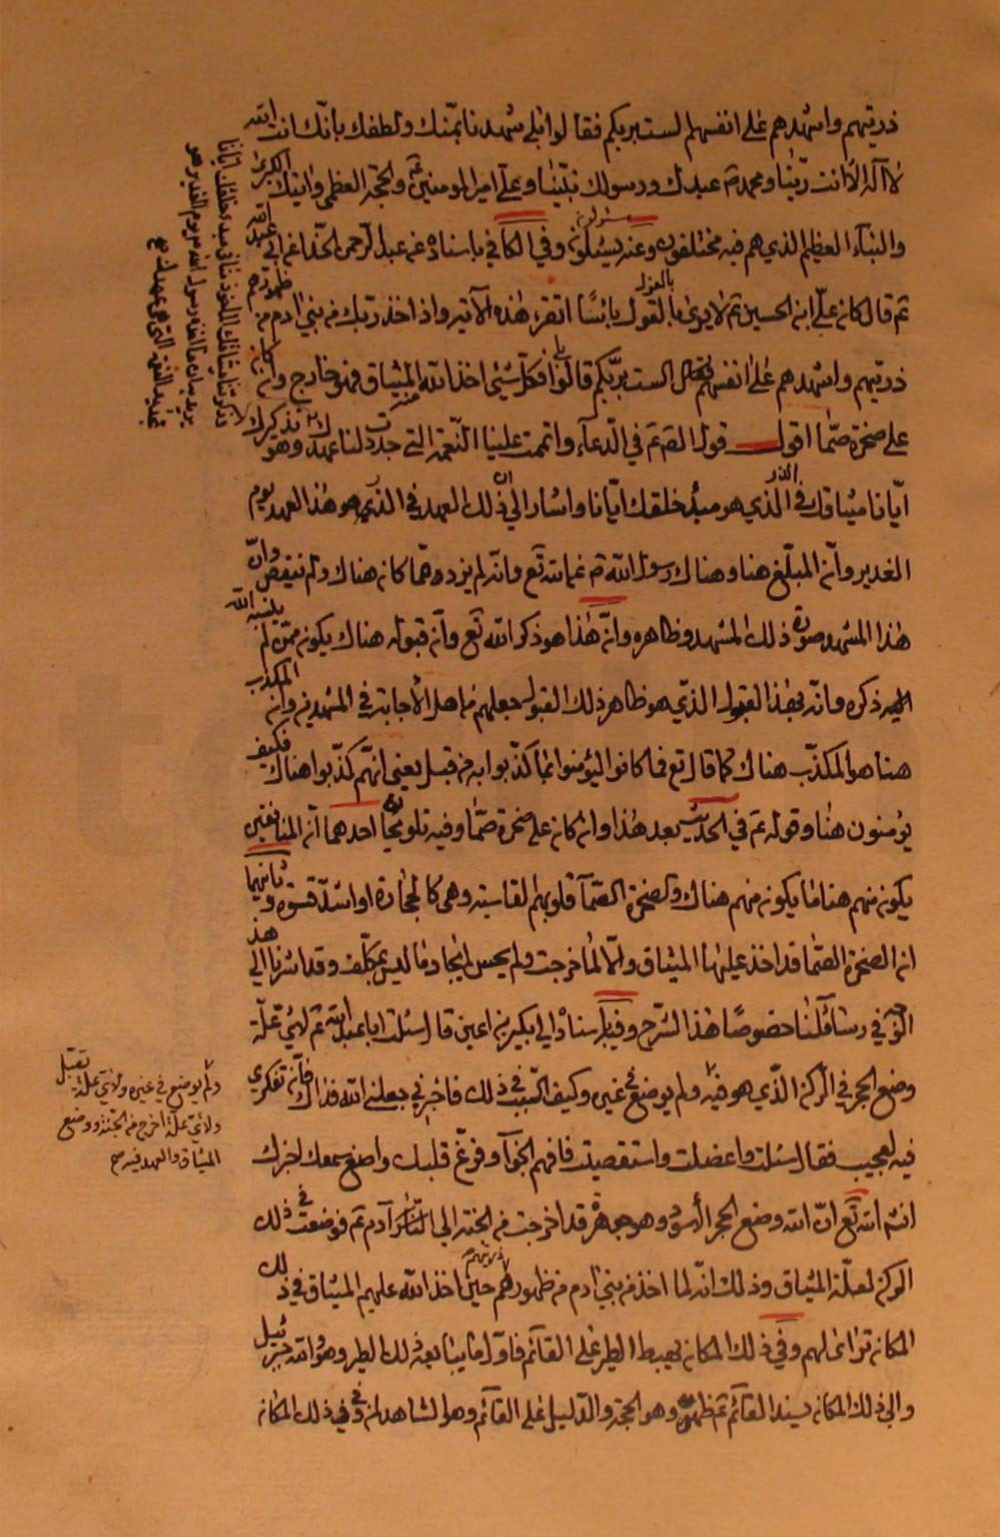 ذريتهم واشهدهم على انفسهم الست بربكم فقالوا بلى شهدنا بمنك ولطفك بانك انت الله
لا اله الا انت ربنا ومحمد ص عبدك ورسولك نبينا وعلي امير المومنين ع والحجة العظمى وايتك الكبرى
والنبأ العظيم الذي هم فيه مختلفون وعنه يسئلون وفي الكافي باسناده عن عبد الرحمن الحذا عن ابي عبد الله
ع قال كان علي ابن الحسين ع لا يرى بالقول باسا اتقرء هذه الآية واذ اخذ ربك من بني ادم من ظهورهم
ذريتهم واشهدهم على انفسهم الست بربكم قالوا بلى فكل شئ اخذ الله الميثاق فهو خارج وان كان
على صخرة صما اقول قول الص ع في الدعآء واتممت علينا النعمة التي جددت لنا عهدك وهو تذكيرك
ايانا ميثاقك في الذي هو مبدء خلقك ايانا واشار الى ان ذلك العهد في الذر هو هذا العهد يوم
الغدير وان المبلغ هنا وهناك رسول الله ص عن الله تع وانه لم يزد مما كان هناك ولم ينقص وان
هذا المشهد صورة ذلك المشهد وظاهره وان هذا هو ذكر الله تع وان قبوله هناك يكون ممن لم ينسه الله
ذكره وانه بهذا القبول الذي هو ظاهر ذلك القبول جعلهم من اهل الأجابة في المشهدين وان المكذب
هنا هو المكذب هناك كما قال تع فما كانوا ليؤمنوا بما كذبوا به من قبل يعني انهم كذبوا هناك فكيف
يؤمنون هنا وقوله ع في الحديث بعد هذا وان كان على صخرة صما وفيه تلويحات احدهما ان المنافقين
يكون منهم هنا ما يكون منهم هناك والصخرة الصمآ قلوبهم القاسية وهي كالحجارة او اشد قسوة وثانيهما
ان الصخرة الصما قد اخذ عليها الميثاق والا لما خرجت ولم يحس ايجاد ما ليس بمكلف وقد اشرنا الى هذا
في رسائلنا خصوصا هذا الشرح وفيه باسناده الى بكير بن اعين قال سئلت ابا عبد الله ع لاي علة
وضع الحجر في الركن الذي هو فيه ولم يوضع في غيره وكيف السبب في ذلك فاخبرني جعلني الله فداك فان تفكري
فيه لعجيب فقال سئلت واعضلت واستقصيت فافهم الجواب وفرغ قلبك واصغ سمعك اخبرك
انشاء الله تع ان الله وضع الحجر الأسود وهو جوهرة قد اخرجت من الجنة الى آدم ع فوضعت في ذلك
الركن لعلة الميثاق وذلك انه لما اخذ من بني ادم من ظهورهم ذريتهم حين اخذ الله عليهم الميثاق في ذلك
المكان ترائى لهم وفي ذلك المكان يهبط الطير على القآئم فاول من يبايعه ذلك الطير وهو والله جبرئيل
والى ذلك المكان يسند القآئم ع ظهره وهو الحجة والدليل على القآئم وهو الشاهد لمن وفي في ذلك المكان
ولم يوضع في غيره ولأي علة تقبل
ولأي علة اخرج من الجنة ووضع
الميثاق والعهد فيه صح